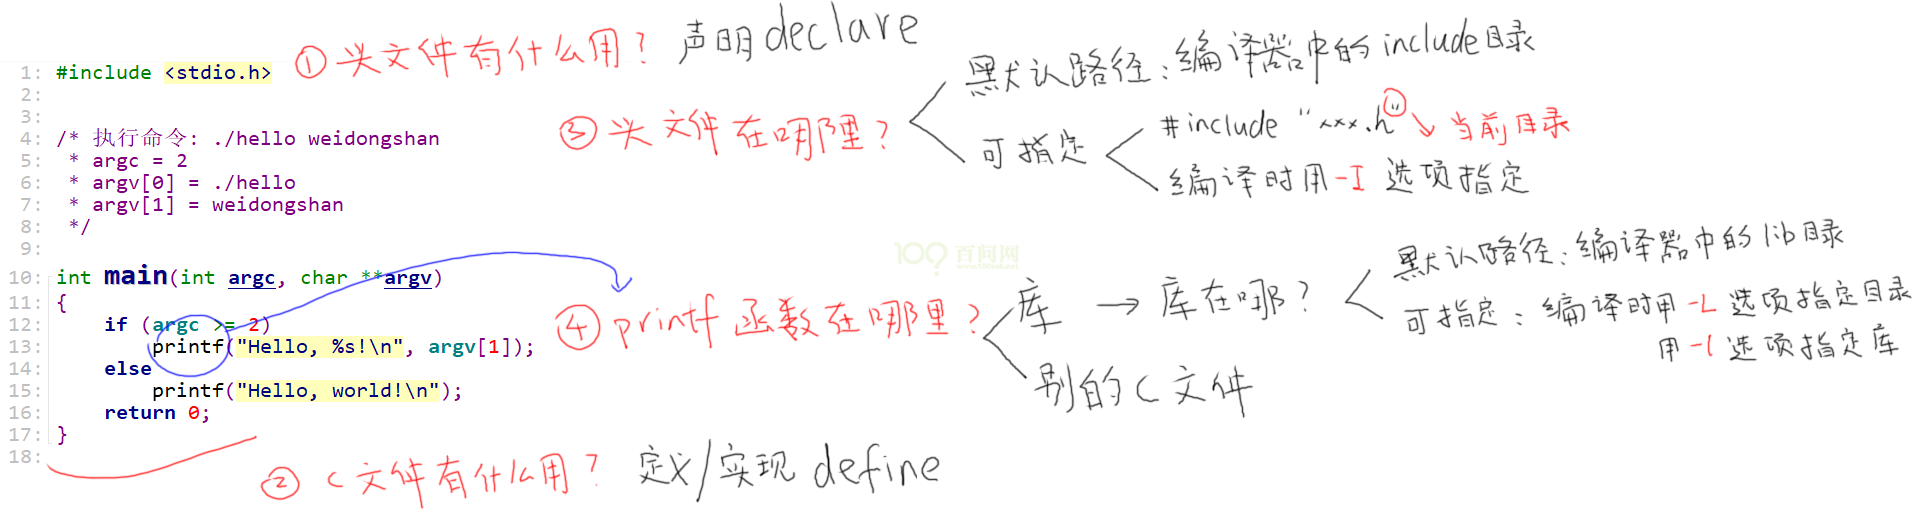 ① 头文件有什么用? 声明 declare
1: #include <stdio.h>
2:
3:
4: /* 执行命令: ./hello weidongshan
5:  * argc = 2
6:  * argv[0] = ./hello
7:  * argv[1] = weidongshan
8:  */
9:
10: int main(int argc, char **argv)
11: {
12:     if (argc >= 2)
13:         printf("Hello, %s!\n", argv[1]);
14:     else
15:         printf("Hello, world!\n");
16:     return 0;
17: }
18:
② C文件有什么用? 定义/实现 define
③ 头文件在哪里?
默认路径:编译器中的include目录
可指定
#include "xxx.h" 当前目录
编译时用-I 选项指定
④ printf函数在哪里?
库 → 库在哪?
默认路径:编译器中的lib目录
可指定: 编译时用-L选项指定目录
用-l选项指定库
别的C文件
100? 百问网